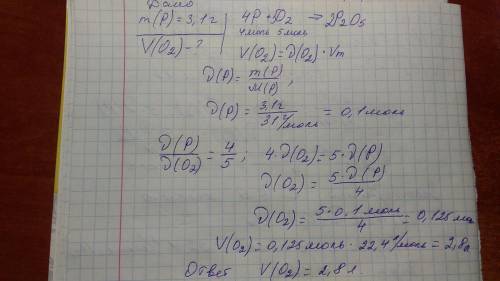 Дано
m(P) = 3,1г
V(O₂) - ?
4P + 5O₂ → 2P₂O₅
4моль 5моль
V(O₂) = ν(O₂) · Vm
ν(P) = m(P)/M(P);
ν(P) = 3,1г/31г/моль = 0,1моль
ν(P)/ν(O₂) = 4/5; 4·ν(O₂) = 5·ν(P)
ν(O₂) = 5·ν(P)/4
ν(O₂) = 5·0,1моль/4 = 0,125мо
V(O₂) = 0,125моль · 22,4л/моль = 2,8л
Ответ V(O₂) = 2,8л